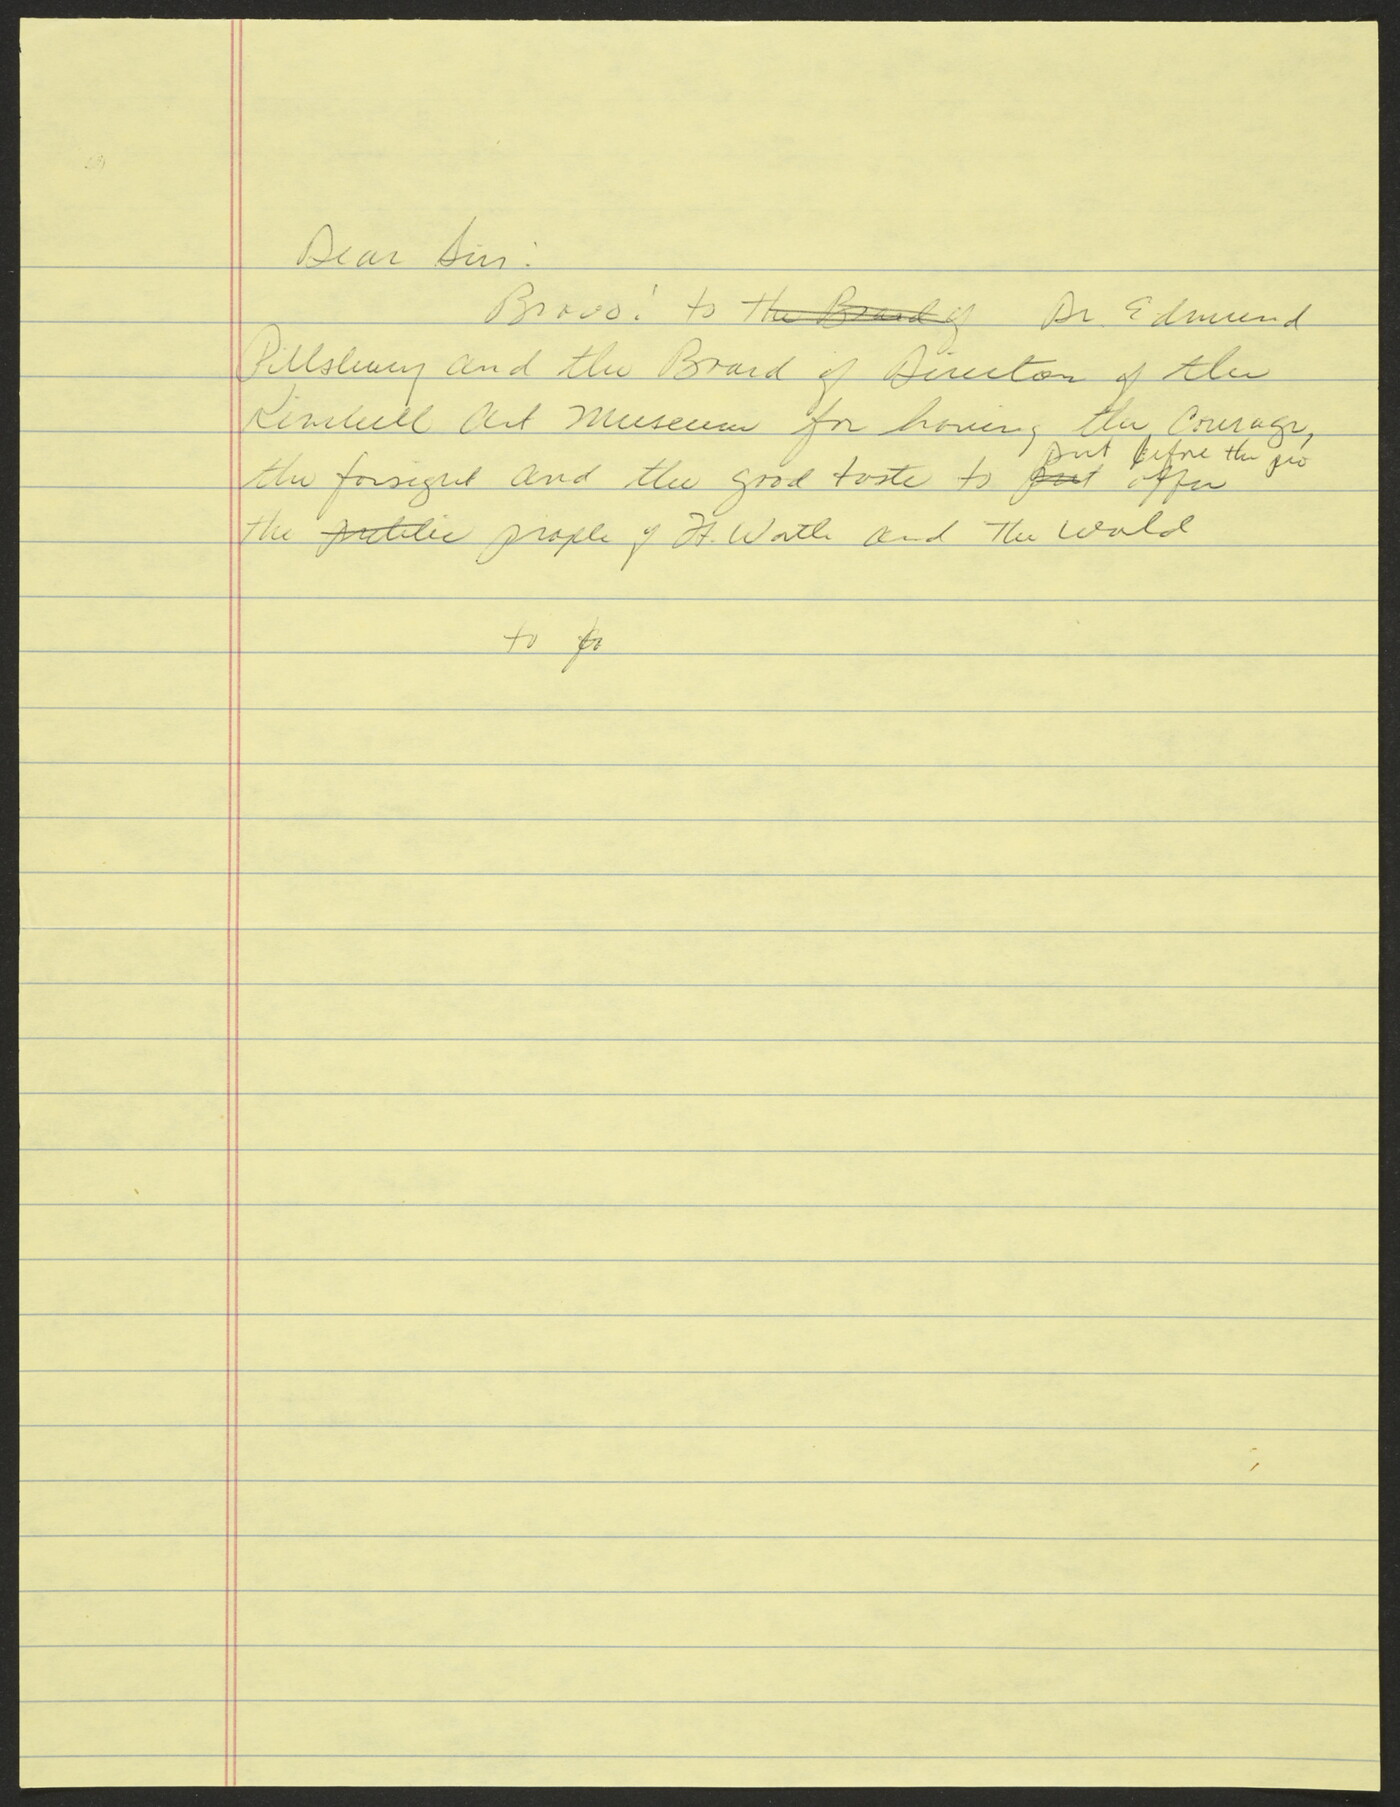 Dear Sir:
Bravo! to the Board of Dr. Edmund
Pillsbury and the Board of Directors of the
Kimbell Art Museum for having the courage,
put before the peo
the forsight and the good taste to put offer
the public people of Ft. Worth and the World
to fo